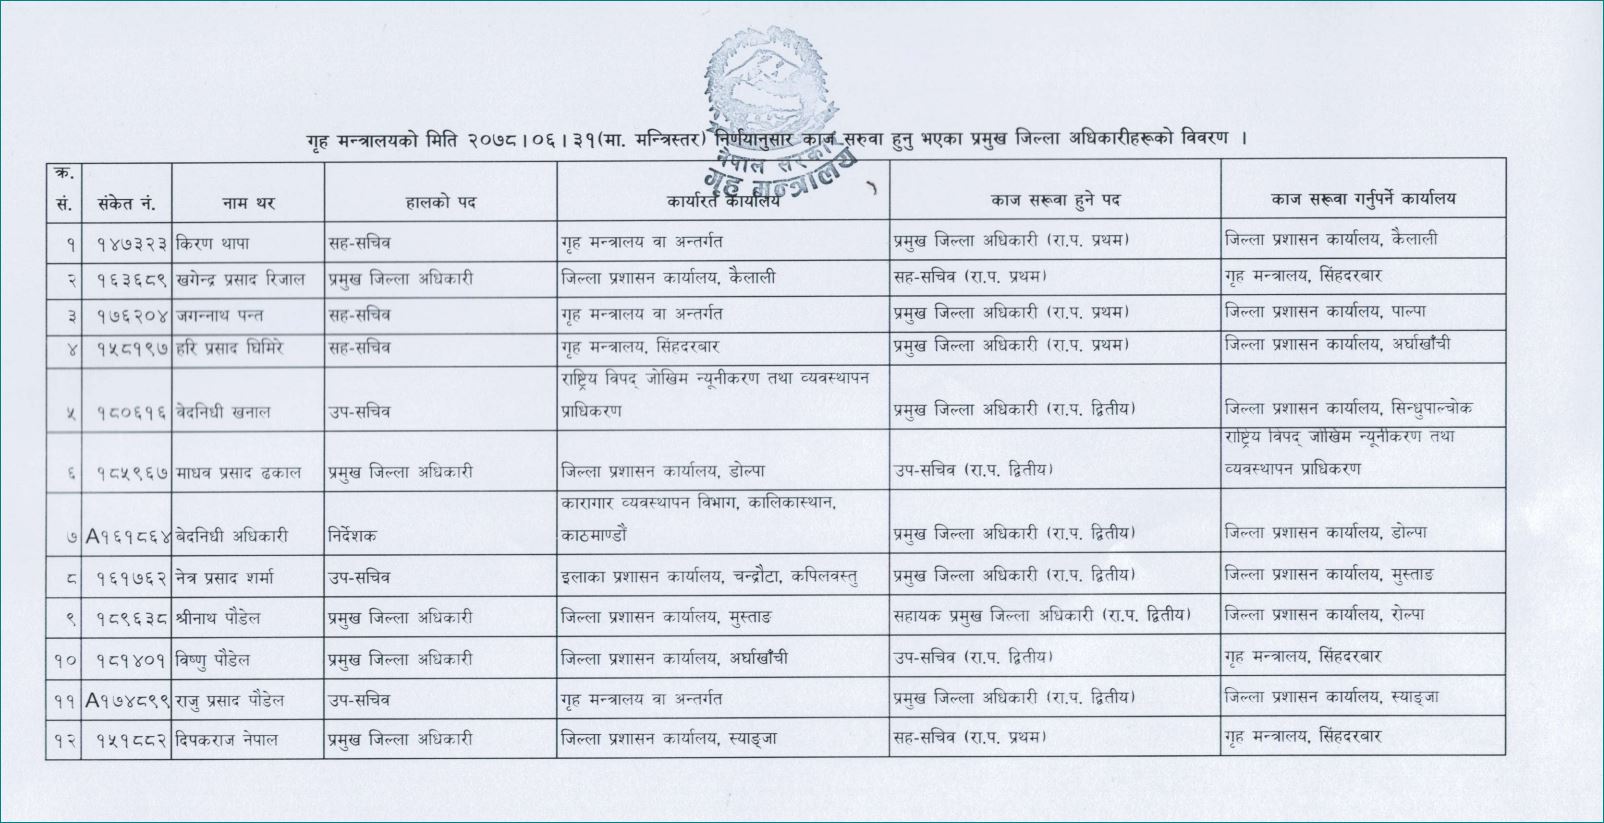 गृह मन्त्रालयको मिति २०७८।०६।३१(मा. मन्त्रिस्तर) निर्णयानुसार काज सरुवा हुनु भएका प्रमुख जिल्ला अधिकारीहरूको विवरण ।
नेपाल सरकार
गृह मन्त्रालय
क्र. सं. संकेत नं. नाम थर हालको पद कार्यारत कार्यालय काज सरूवा हुने पद काज सरूवा गर्नुपर्ने कार्यालय
१ १४७३२३ किरण थापा सह-सचिव गृह मन्त्रालय वा अन्तर्गत प्रमुख जिल्ला अधिकारी (रा.प. प्रथम) जिल्ला प्रशासन कार्यालय, कैलाली
२ १६३६८९ खगेन्द्र प्रसाद रिजाल प्रमुख जिल्ला अधिकारी जिल्ला प्रशासन कार्यालय, कैलाली सह-सचिव (रा.प. प्रथम) गृह मन्त्रालय, सिंहदरबार
३ १७६२०४ जगन्नाथ पन्त सह-सचिव गृह मन्त्रालय वा अन्तर्गत प्रमुख जिल्ला अधिकारी (रा.प. प्रथम) जिल्ला प्रशासन कार्यालय, पाल्पा
४ १५८१९७ हरि प्रसाद घिमिरे सह-सचिव गृह मन्त्रालय, सिंहदरबार प्रमुख जिल्ला अधिकारी (रा.प. प्रथम) जिल्ला प्रशासन कार्यालय, अर्घाखाँची
५ १८०६१६ वेदनिधी खनाल उप-सचिव राष्ट्रिय विपद् जोखिम न्यूनीकरण तथा व्यवस्थापन
प्राधिकरण प्रमुख जिल्ला अधिकारी (रा.प. द्वितीय) जिल्ला प्रशासन कार्यालय, सिन्धुपाल्चोक
६ १८५९६७ माधव प्रसाद ढकाल प्रमुख जिल्ला अधिकारी जिल्ला प्रशासन कार्यालय, डोल्पा उप-सचिव (रा.प. द्वितीय) राष्ट्रिय विपद् जोखिम न्यूनीकरण तथा
व्यवस्थापन प्राधिकरण
७ A१६१८६४ बेदनिधी अधिकारी निर्देशक कारागार व्यवस्थापन विभाग, कालिकास्थान,
काठमाण्डौं प्रमुख जिल्ला अधिकारी (रा.प. द्वितीय) जिल्ला प्रशासन कार्यालय, डोल्पा
८ १६१७६२ नेत्र प्रसाद शर्मा उप-सचिव इलाका प्रशासन कार्यालय, चन्द्रौटा, कपिलवस्तु प्रमुख जिल्ला अधिकारी (रा.प. द्वितीय) जिल्ला प्रशासन कार्यालय, मुस्ताङ
९ १८९६३८ श्रीनाथ पौडेल प्रमुख जिल्ला अधिकारी जिल्ला प्रशासन कार्यालय, मुस्ताङ सहायक प्रमुख जिल्ला अधिकारी (रा.प. द्वितीय) जिल्ला प्रशासन कार्यालय, रोल्पा
१० १८१४०१ विष्णु पौडेल प्रमुख जिल्ला अधिकारी जिल्ला प्रशासन कार्यालय, अर्घाखाँची उप-सचिव (रा.प. द्वितीय) गृह मन्त्रालय, सिंहदरबार
११ A१७४८९९ राजु प्रसाद पौडेल उप-सचिव गृह मन्त्रालय वा अन्तर्गत प्रमुख जिल्ला अधिकारी (रा.प. द्वितीय) जिल्ला प्रशासन कार्यालय, स्याङ्जा
१२ १५१८८२ दिपकराज नेपाल प्रमुख जिल्ला अधिकारी जिल्ला प्रशासन कार्यालय, स्याङ्जा सह-सचिव (रा.प. प्रथम) गृह मन्त्रालय, सिंहदरबार